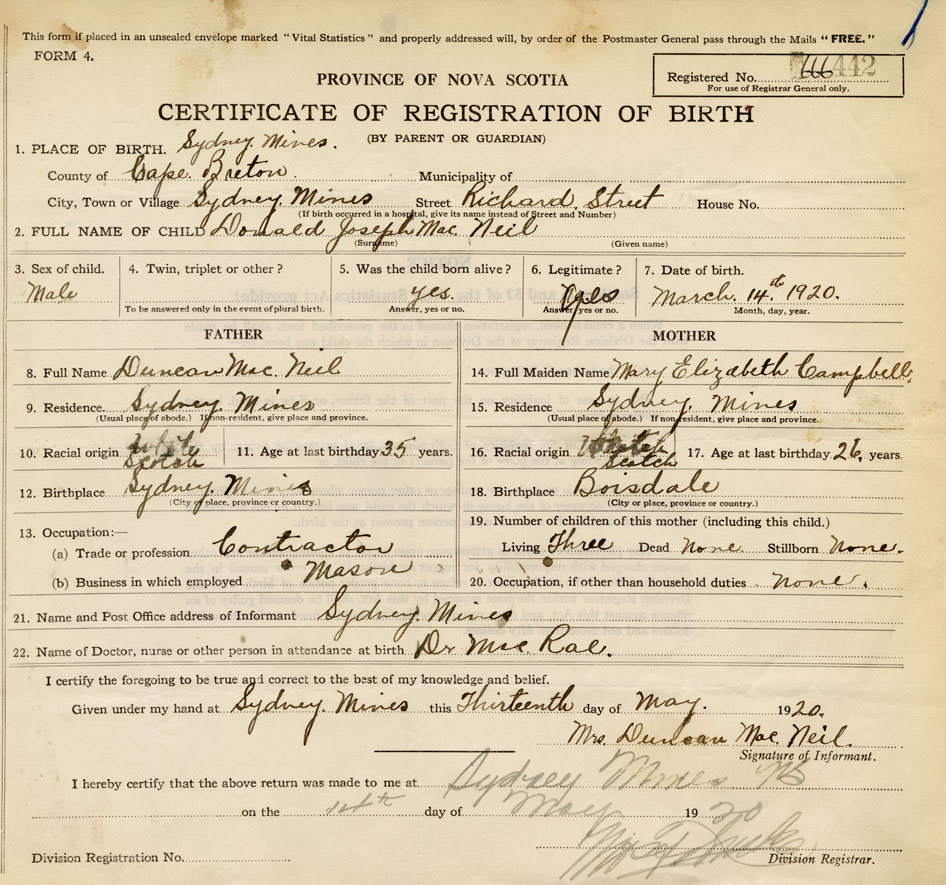 This form if placed in an unsealed envelope marked "Vital Statistics" and properly addressed will, by order of the Postmaster General pass through the Mails "FREE."
FORM 4.
Registered No. 666442
For use of Registrar General only.
PROVINCE OF NOVA SCOTIA
CERTIFICATE OF REGISTRATION OF BIRTH
(BY PARENT OR GUARDIAN)
1. PLACE OF BIRTH. Sydney Mines.
County of Cape Breton. Municipality of
City, Town or Village Sydney Mines Street Richard Street House No.
(If birth occurred in a hospital, give its name instead of Street and Number)
2. FULL NAME OF CHILD Donald Joseph Mac Neil
(Surname) (Given name)
3. Sex of child. 4. Twin, triplet or other? 5. Was the child born alive? 6. Legitimate? 7. Date of birth.
Male yes. yes March. 14th 1920.
To be answered only in the event of plural birth. Answer, yes or no. Answer, yes or no. Month, day, year.
FATHER MOTHER
8. Full Name Duncan Mac. Neil 14. Full Maiden Name Mary Elizabeth Campbell,
9. Residence. Sydney Mines 15. Residence Sydney Mines
(Usual place of abode.) If non-resident, give place and province. (Usual place of abode.) If non-resident, give place and province.
10. Racial origin Scotch 11. Age at last birthday 35 years. 16. Racial origin Scotch 17. Age at last birthday 26, years.
12. Birthplace Sydney Mines 18. Birthplace Boisdale
(City or place, province or country.) (City or place, province or country.)
13. Occupation:— 19. Number of children of this mother (including this child.)
(a) Trade or profession Contractor Living Three Dead None Stillborn None.
(b) Business in which employed Mason 20. Occupation, if other than household duties none.
21. Name and Post Office address of Informant Sydney Mines
22. Name of Doctor, nurse or other person in attendance at birth Dr Mac Rae.
I certify the foregoing to be true and correct to the best of my knowledge and belief.
Given under my hand at Sydney Mines this Thirteenth day of May. 1920.
Mrs. Duncan Mac. Neil.
Signature of Informant.
I hereby certify that the above return was made to me at Sydney Mines
on the 14th day of May 1920
Division Registration No. Division Registrar.